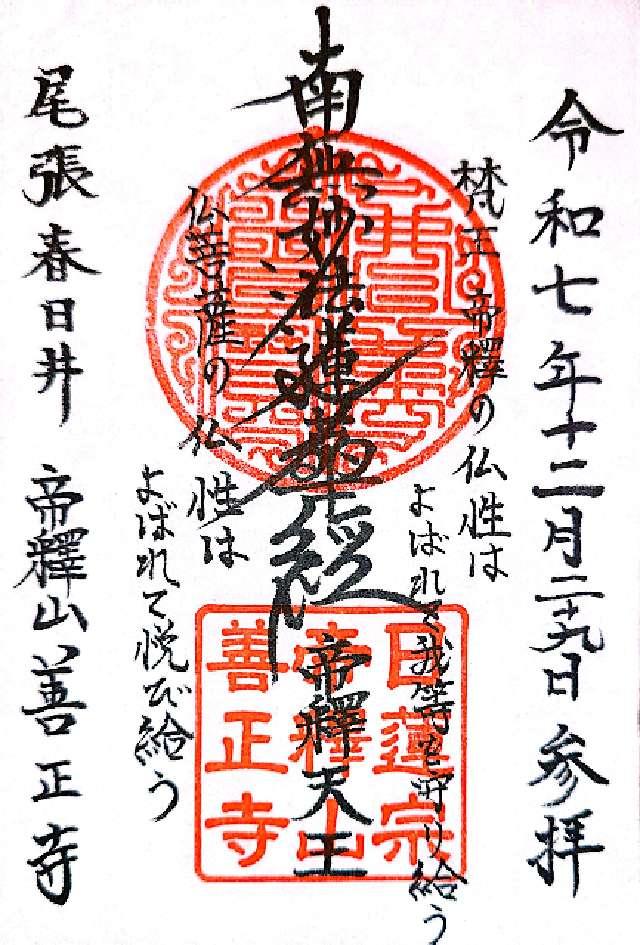 令和七年十二月二十九日 参拝
梵王 帝釋の仏性は
よばれて我等を守り給う
南無妙法蓮華経
帝釋天王
仏菩薩の仏性は
よばれて悦び給う
尾張春日井 帝釋山善正寺
日蓮宗
帝釋山
善正寺